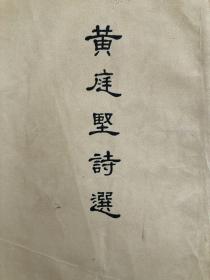 黄庭堅詩選